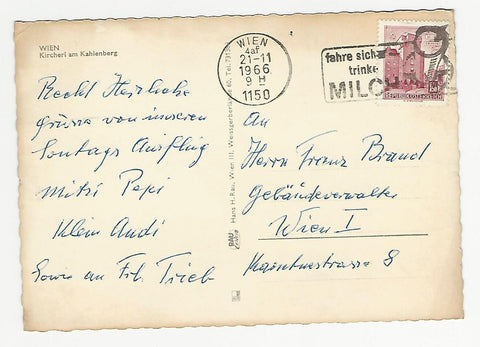 WIEN
Kircherl am Kahlenberg
Recht Herzliche
Grüsse von unseren
Sontags Ausflug
Mitzi Pepi
Klein Andi
Sowie an Frl. Trieb
Hans H. Rau, Wien III, Weissgerberlände 60, Tel. 731
RAU
WIEN
4af
21-11
1966
9 H
1150
fahre sich
trinke
MILCH
REPUBLIK ÖSTERREICH
An
Herrn Franz Brand
Gebäudeverwalter
Wien I
Kärntnerstrasse 8